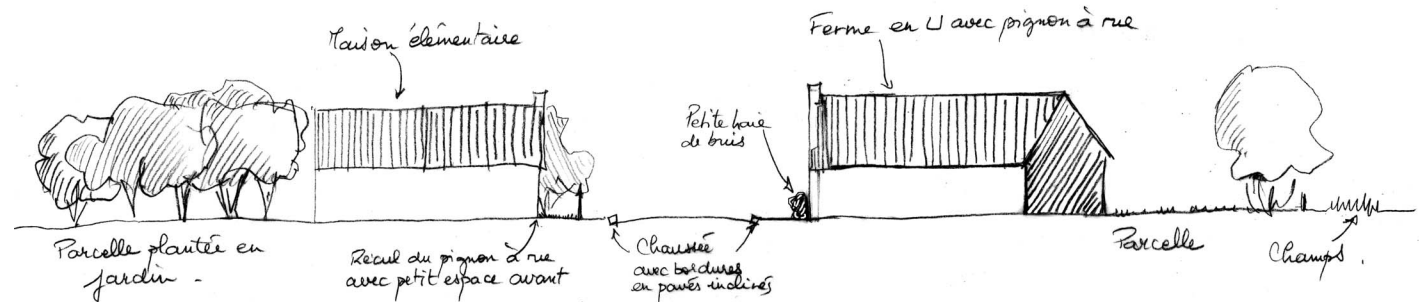 Maison élémentaire
Ferme en U avec pignon à rue
Petite haie
de buis
Parcelle plantée en
jardin.
Recul du pignon à rue
avec petit espace avant
Chaussée
avec bordures
en pavés inclinés
Parcelle
Champs.